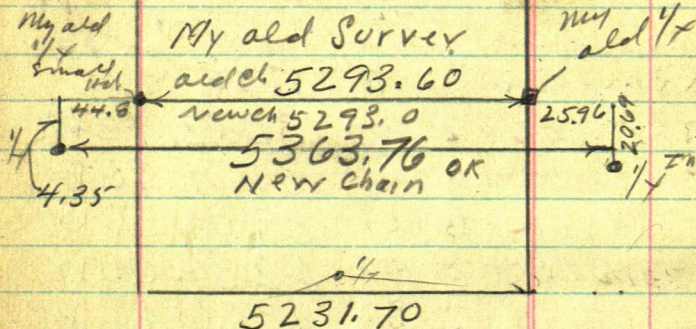 My old
1/4
small
My old Survey
My
old 1/4
old ch 5293.60
44.6
New ch 5293.0
25.96
20.69
5363.76 OK
New Chain
1/4
4.35
1/4
1/4
5231.70